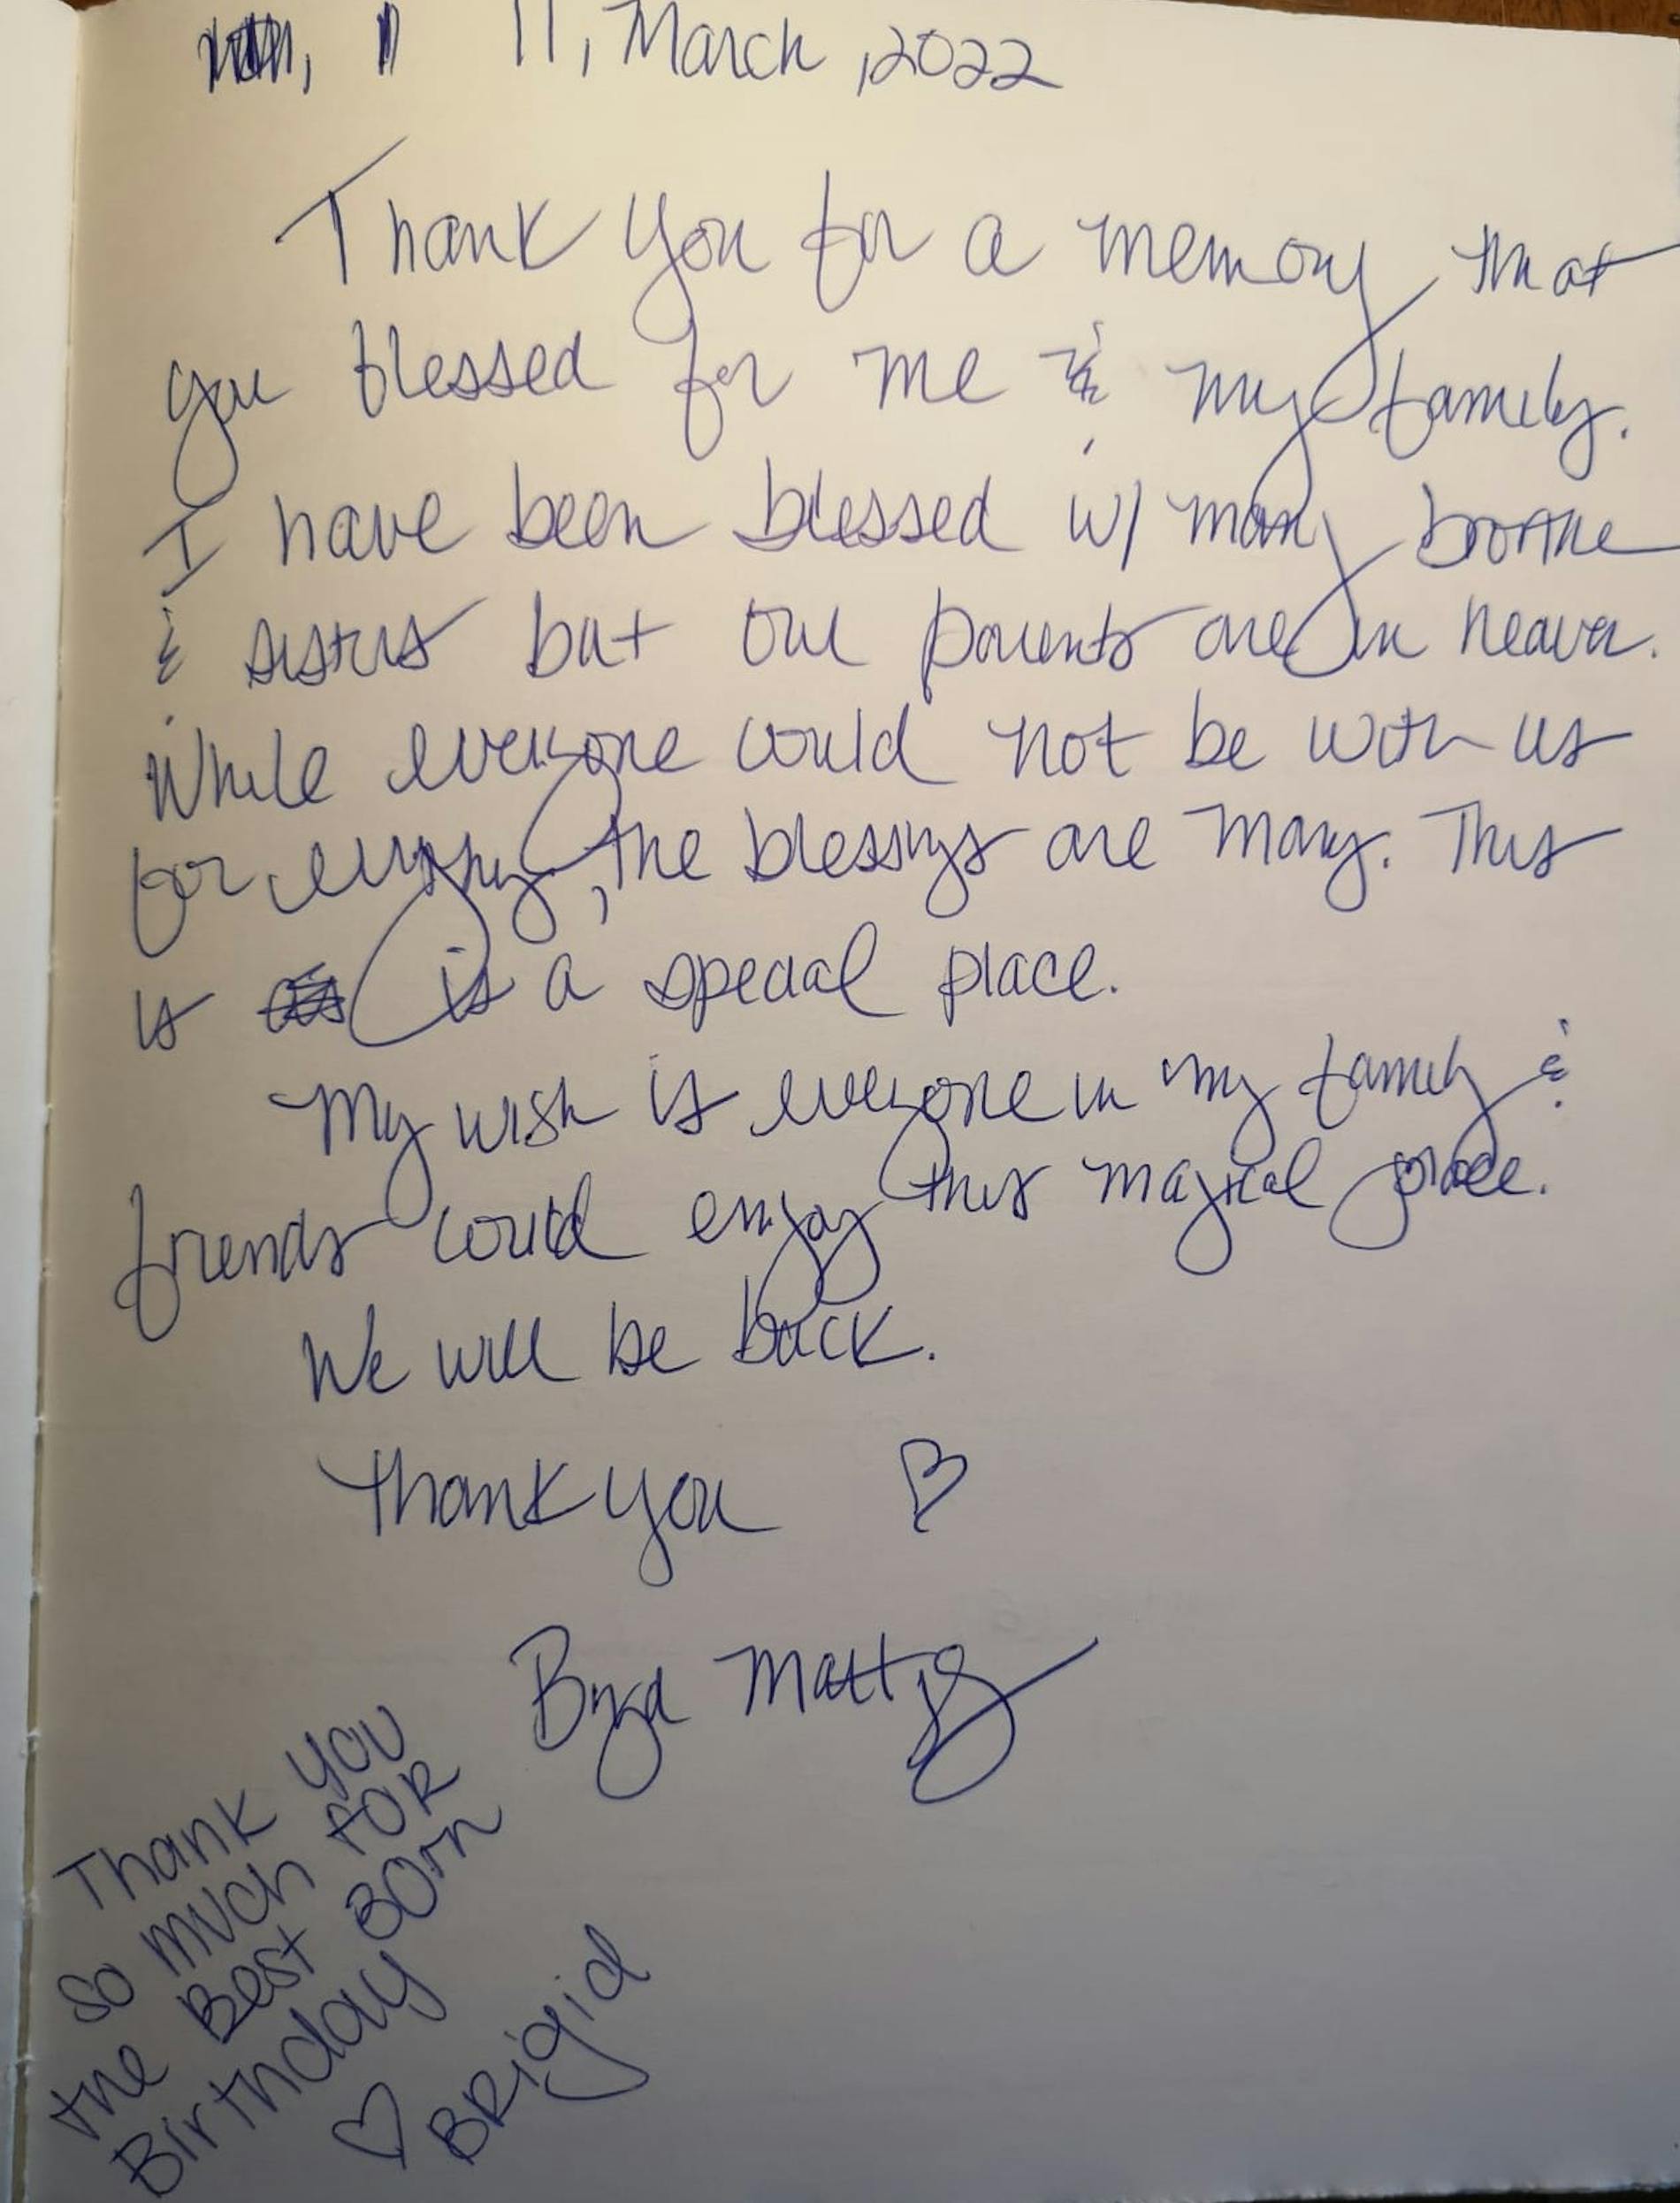 11, March, 2022
Thank you for a memory that
you blessed for me & my family.
I have been blessed w/ many brothe
& sisters but our parents are in heaven.
While everyone could not be with us
for everything, the blessings are many. This
is is a special place.
My wish is everyone in my family &
friends could enjoy this magical place.
We will be back.
Thank you ♡
Thank you
so much for
the Best 30th
Birthday
♡ Brigid